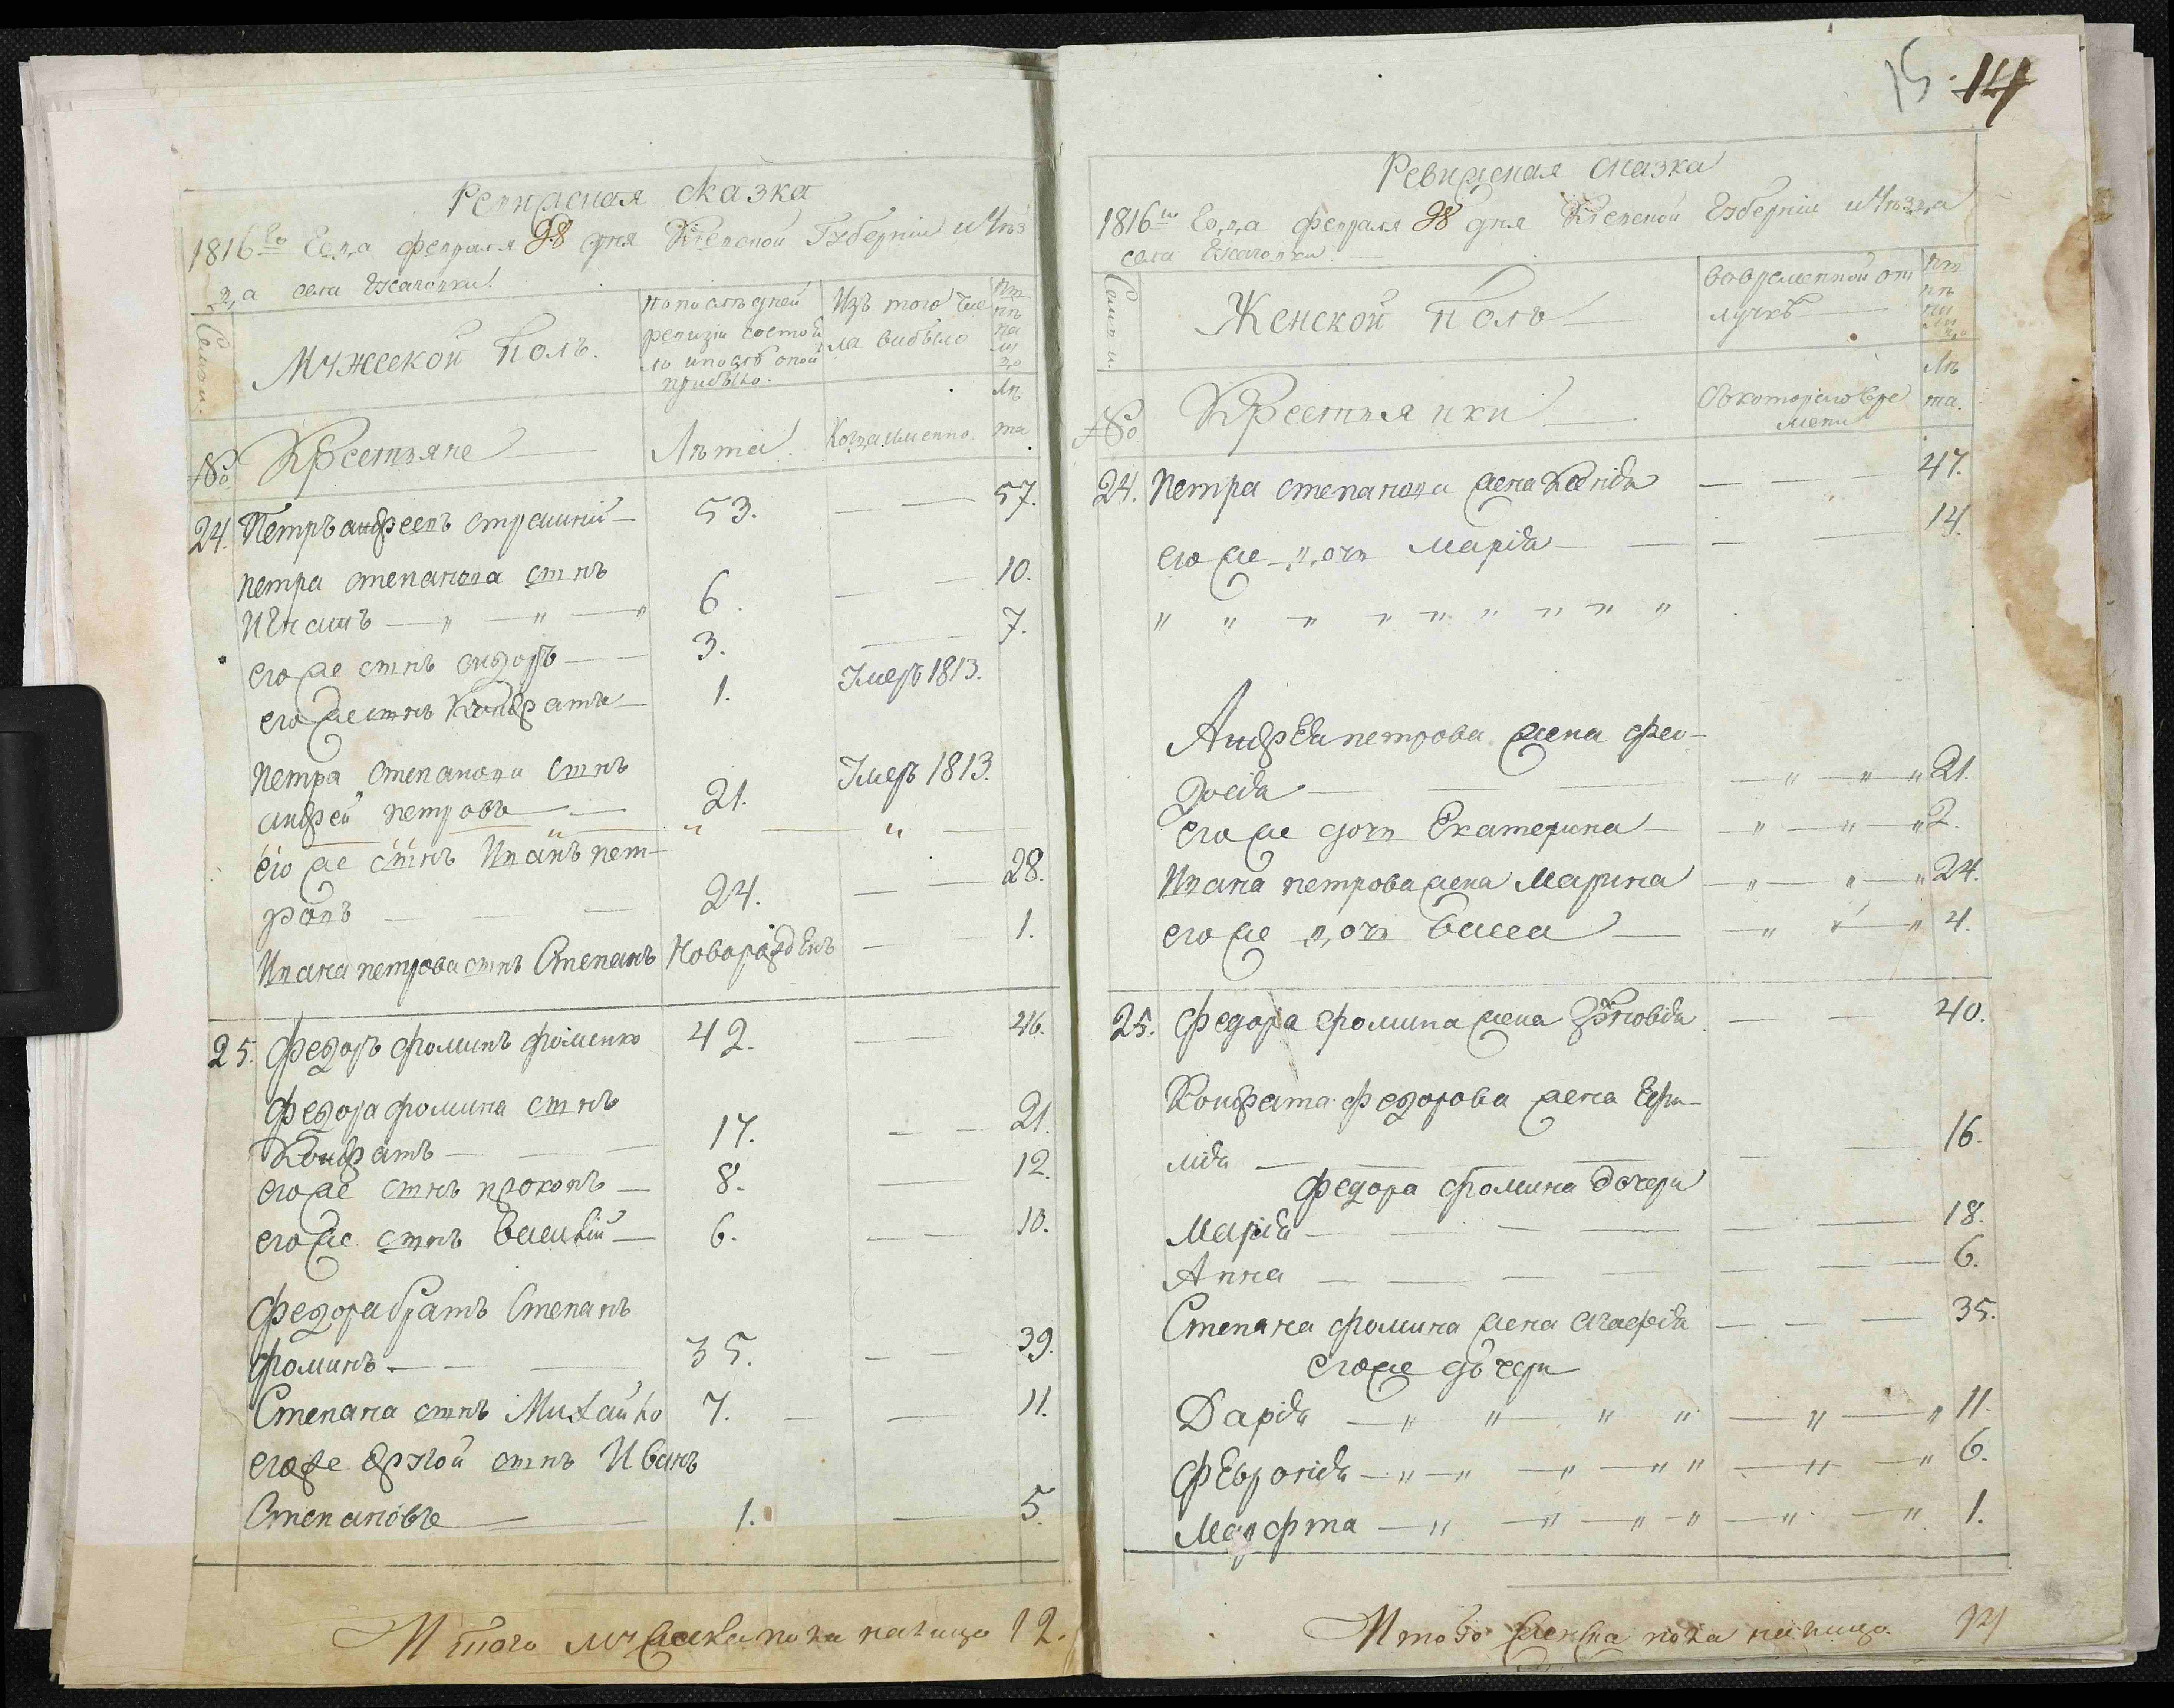 Ревизская сказка
1816го Года февраля 28 дня Киевской Губернии и Уѣз
да села
Семьи.
Мужеской полъ.
по послѣдней
ревизіи состоя
ло и послѣ оной
прибыло.
Изъ того чис
ла выбыло
Ны
нѣ
на
ли
цо
№
Крестьяне
Лѣта
Когда именно.
Лѣ
та
24. Петръ Стецкий 53. 57.
Петра степанова сынъ
Игнатъ 6. 10.
его же сынъ сидоръ 3. 7.
его же сынъ Кондратъ 1. Умеръ 1813.
Петра степанова сынъ
андрей петровъ 21. Умеръ 1813.
его же сынъ Иванъ пет-
ровъ 24. 28.
Ивана петрова сынъ Степанъ Новорожденъ 1.
25. Федоръ фоминъ фоменко 42. 46.
Федора фомина сынъ
Кондратъ 17. 21.
его же сынъ прокопъ 8. 12.
его же сынъ василий 6. 10.
Федора братъ Степанъ
фоминъ 35. 39.
Степана сынъ Михайло 7. 11.
его же другой сынъ Иванъ
Степановъ 1. 5.
Итого мужеска пола налицо 12.
15 14
Ревизская сказка
1816го Года февраля 28 дня Киевской Губернии и Уѣзда
села
Семьи.
Женской полъ
во временной от
лучкѣ
Ны
нѣ
на
ли
цо
№
Крестьянки
Съ котораго вре
мени
Лѣ
та.
24. Петра степанова жена Ксенія 47.
его же дочь Марія 14.
Андрея петрова жена фео-
досія 21.
его же дочь Екатерина 2.
Ивана петрова жена Марина 24.
его же дочь васса 4.
25. Федора фомина жена Зѣновія 40.
Кондрата федорова жена Ефи-
мія 16.
федора фомина дочери
Марія 18.
Анна 6.
Степана фомина жена агафія 35.
его же дочери
Дарія 11.
Февронія 6.
Марфта 1.
Итого женска пола налицо 12